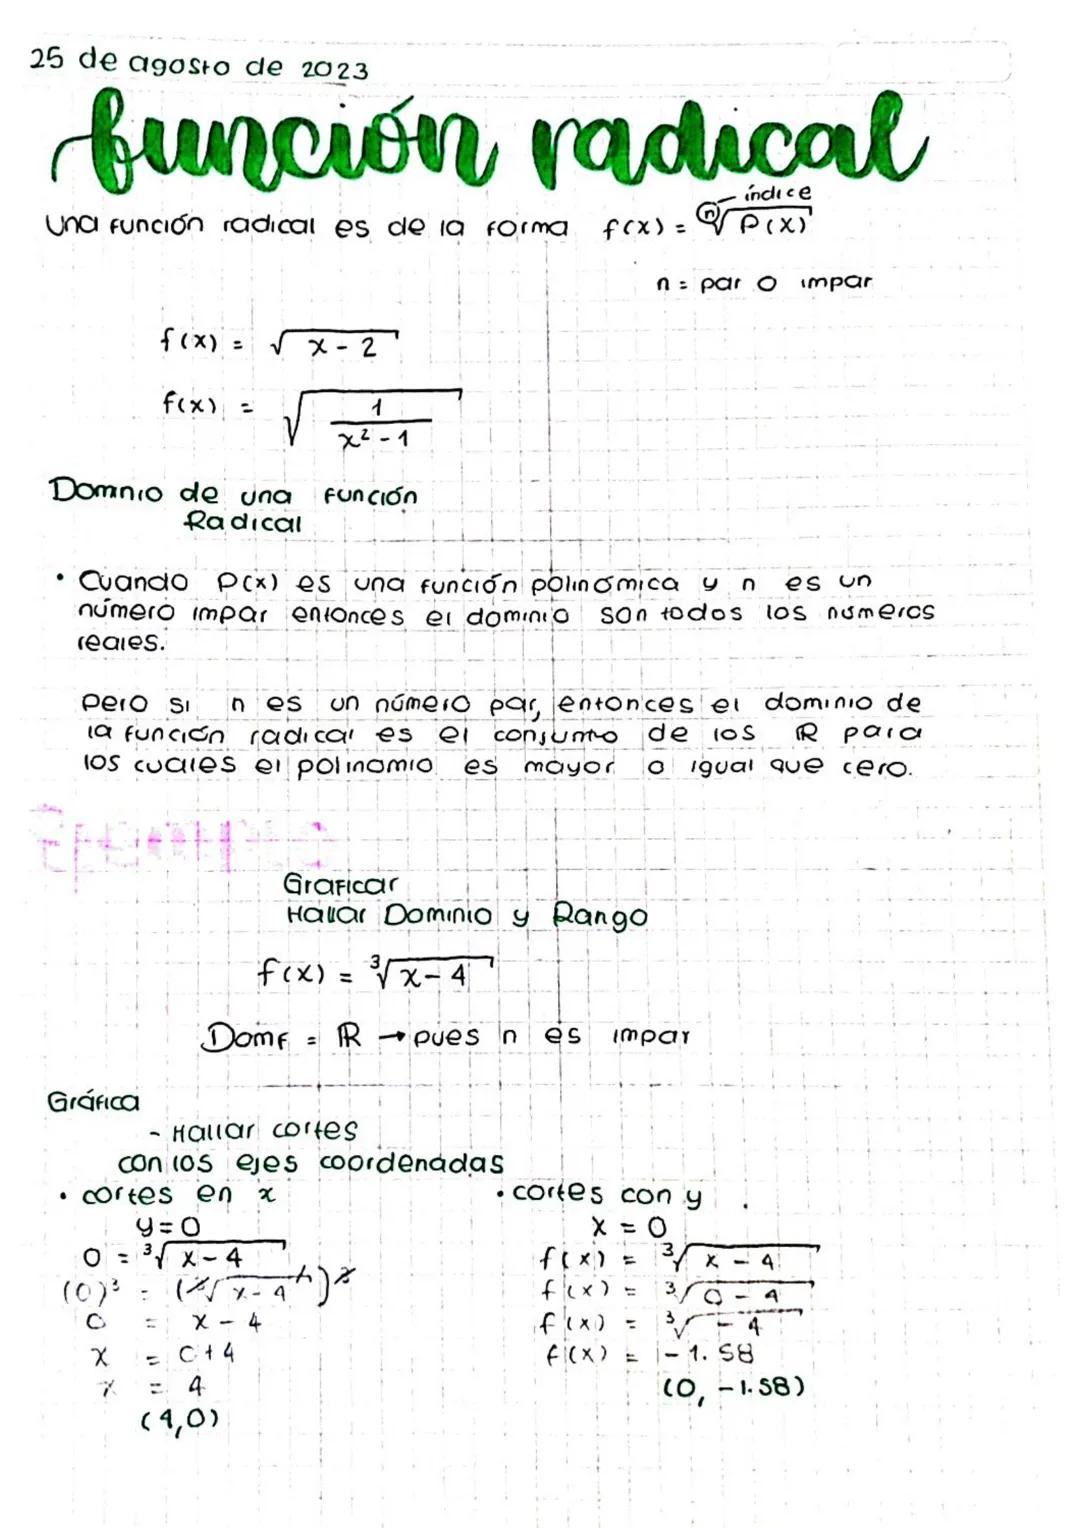 25 de agosto de 2023
función radical
Una función radical es de la forma f(x) = ⁿ√P(x) índice
n = par o impar
f(x) = √x - 2
f(x) = √1/(x² - 1)
Domnio de una función
Radical
• Cuando P(x) es una función polinómica y n es un
número impar entonces el dominio son todos los números
reales.
pero si n es un número par, entonces el dominio de
la función radical es el conjunto de los ℝ para
los cuales el polinomio es mayor o igual que cero.
Graficar
Hallar Dominio y Rango
f(x) = ³√x - 4
Domf = ℝ → pues n es impar
Gráfica
- Hallar cortes
con los ejes coordenadas
• cortes en x
y = 0
0 = ³√x - 4
(0)³ = (³√x - 4)³
0 = x - 4
x = 0 + 4
x = 4
(4,0)
• cortes con y
x = 0
f(x) = ³√x - 4
f(x) = ³√0 - 4
f(x) = ³√- 4
f(x) = -1.58
(0, -1.58)